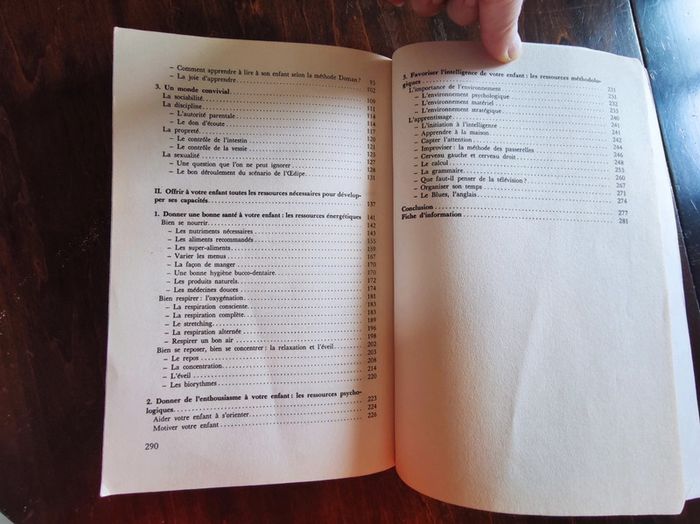 – Comment apprendre à lire à son enfant selon la méthode Doman? 95
– La joie d'apprendre 102
3. Un monde convivial 109
La sociabilité 111
La discipline 114
– L'autorité parentale 114
– Le don d'écoute 117
La propreté 120
– Le contrôle de l'intestin 121
– Le contrôle de la vessie 125
La sexualité 127
– Une question que l'on ne peut ignorer 128
– Le bon déroulement du scénario de l'Œdipe 131
II. Offrir à votre enfant toutes les ressources nécessaires pour dévelop-
per ses capacités 137
1. Donner une bonne santé à votre enfant : les ressources énergétiques 141
Bien se nourrir 142
– Les nutriments nécessaires 143
– Les aliments recommandés 155
– Les super-aliments 159
– Varier les menus 167
– La façon de manger 170
– Une bonne hygiène bucco-dentaire 170
– Les produits naturels 172
– Les médecines douces 174
Bien respirer : l'oxygénation 181
– La respiration consciente 183
– La respiration complète 183
– Le stretching 189
– La respiration alternée 196
– Respirer un bon air 198
Bien se reposer, bien se concentrer : la relaxation et l'éveil 202
– Le repos 203
– La concentration 208
– L'éveil 214
– Les biorythmes 220
2. Donner de l'enthousiasme à votre enfant : les ressources psycho-
logiques 223
Aider votre enfant à s'orienter 224
Motiver votre enfant 226
290
3. Favoriser l'intelligence de votre enfant : les ressources méthodolo-
giques 231
L'importance de l'environnement 231
– L'environnement psychologique 231
– L'environnement matériel 232
– L'environnement stratégique 235
L'apprentissage 240
– L'initiation à l'intelligence 241
– Apprendre à la maison 241
– Capter l'attention 242
– Improviser : la méthode des passerelles 244
– Cerveau gauche et cerveau droit 246
– Le calcul 248
– La grammaire 255
– Que faut-il penser de la télévision ? 260
– Organiser son temps 267
– Le Blues, l'anglais 271
274
Conclusion 277
Fiche d'information 281